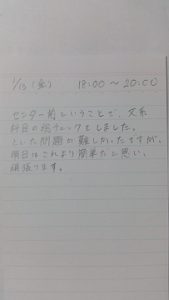 1/13(金) 18:00〜20:00
センター前ということで、文系
科目の総チェックをしました。
といた問題が難しかったですが、
明日はこれより簡単だと思い、
頑張ります。